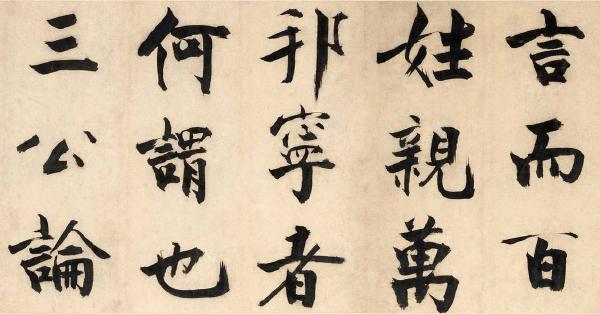 言而百
姓親萬
邦寧者
何謂也
三公論